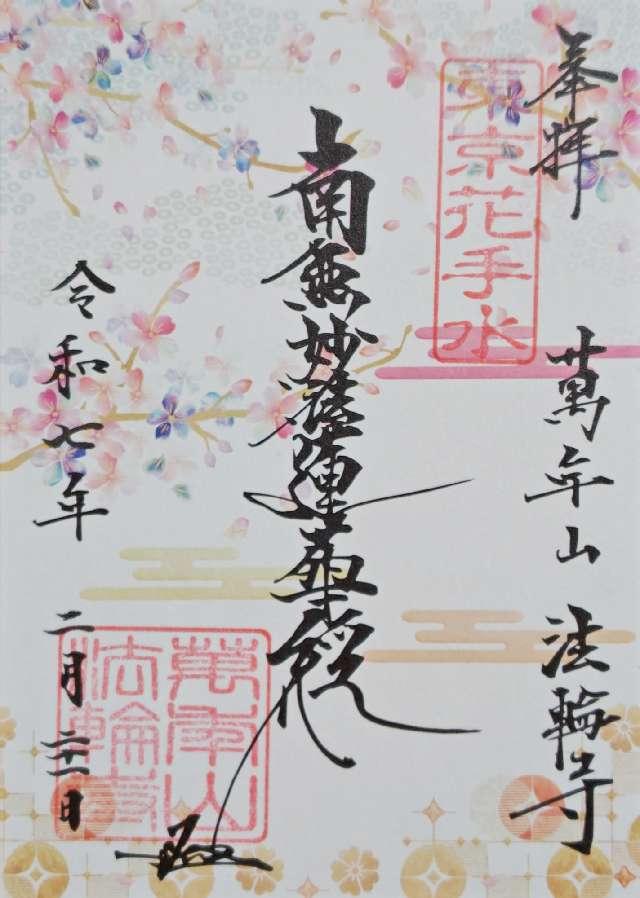 奉拝
萬年山 法輪寺
東京花手水
南無妙法蓮華経
令和七年 二月二十一日
萬年山
法輪寺